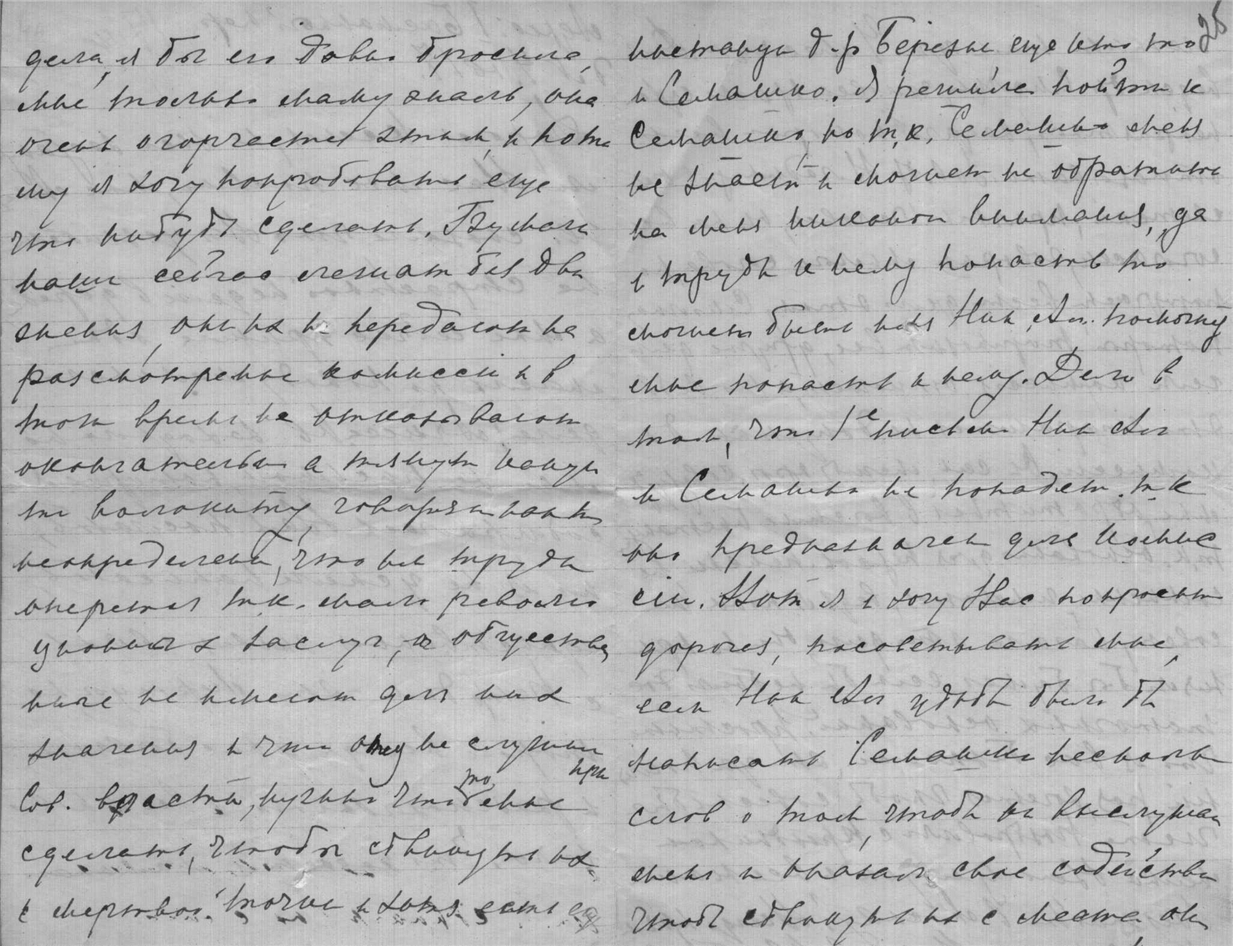 дела, я бы его давно бросила,
мне только маму жаль, она
очень огорчается этим, и пото
му я хочу попробовать еще
что нибудь сделать. Бумаги
наши сейчас лежат без дви
жения, они их не передают на
рассмотрение комиссии и в
тоже время не отказывают
окончательно а тянут какую
то волокиту, говорят
неопределенно, что их труды
т.к. мало револю
ционных заслуг, а обществен
ные не имеют для них
значения и что отец не служил при
Сов. власти, нужно что то
сделать, чтобы сдвинуть их
с мертвой точки и хотя есть
26
д-р Березы еще кто то
и Семашко. Я решила пойти к
Семашко, но т.к. Семашко меня
не знает и может не обратить
на меня никакого внимания, да
и трудно к нему попасть то
может быть Ник. Ал. поможет
мне попасть к нему. Дело в
том, что 1е письмо Ник Ал
к Семашко не попадет т.к
оно предназначено для комис
сии. Вот я и хочу Вас попросить
дорогая, посоветывать мне,
если Ник Ал удобно было бы
написать Семашко несколько
слов о том, чтобы он выслушал
меня и оказал свое содействие
чтоб сдвинуть их с места, они